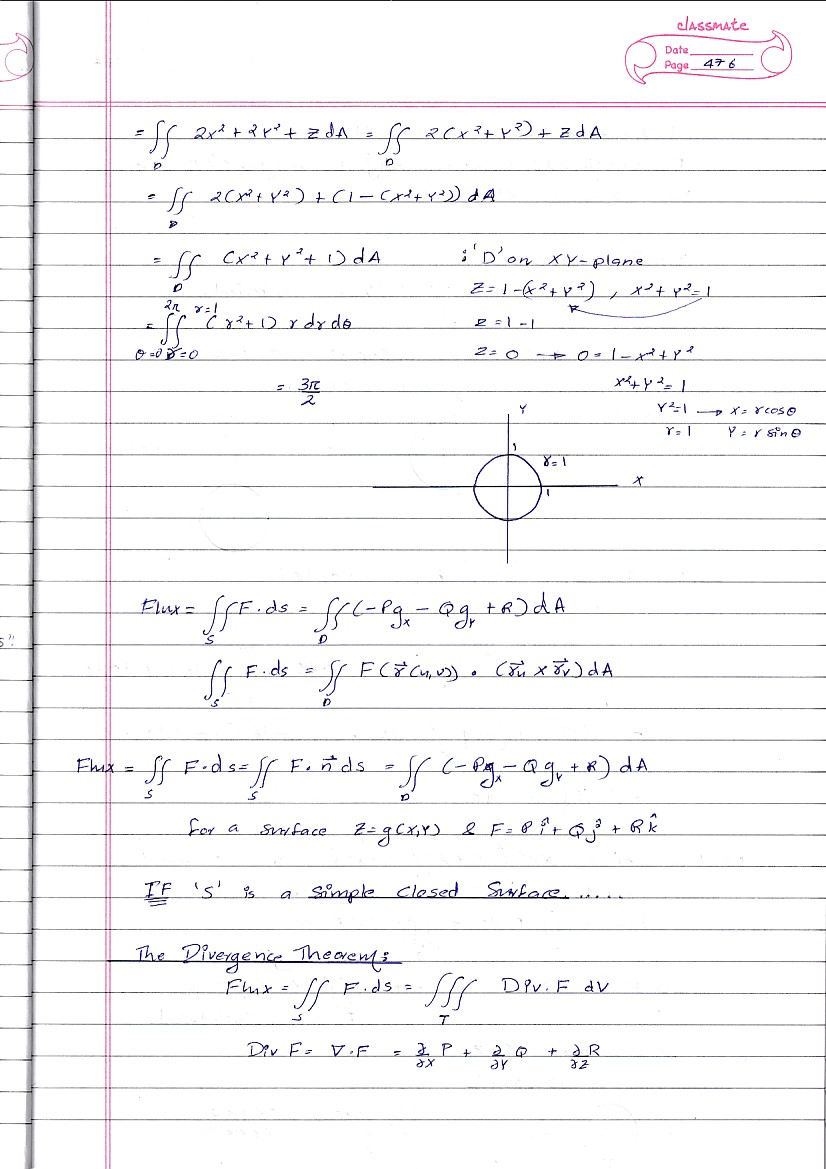 classmate
Date
Page 476
= ∬_D 2x² + 2y² + z dA = ∬_D 2(x² + y²) + z dA
= ∬_D 2(x² + y²) + (1 - (x² + y²)) dA
= ∬_D (x² + y² + 1) dA ; 'D' on XY-plane
z = 1 - (x² + y²) , x² + y² = 1
= ∬_{θ=0 r=0}^{2π r=1} (r² + 1) r dr dθ z = 1 - 1
z = 0 → 0 = 1 - x² + y²
= 3π/2 x² + y² = 1
r² = 1 → x = r cosθ
r = 1 y = r sinθ
Y
1
r = 1
X
1
Flux = ∬_S F · ds = ∬_D (-Pg_x - Qg_y + R) dA
s"
∬_S F · ds = ∬_D F(r⃗(u,v)) • (r⃗u × r⃗v) dA
Flux = ∬_S F · ds = ∬_S F · n⃗ ds = ∬_D (-Pg_x - Qg_y + R) dA
for a surface z = g(x,y) & F = P î + Q ĵ + R k̂
IF 'S' is a Simple Closed Surface.....
The Divergence Theorem:
Flux = ∬_S F · ds = ∭_T Div. F dV
Div F = ∇·F = ∂/∂x P + ∂/∂y Q + ∂/∂z R